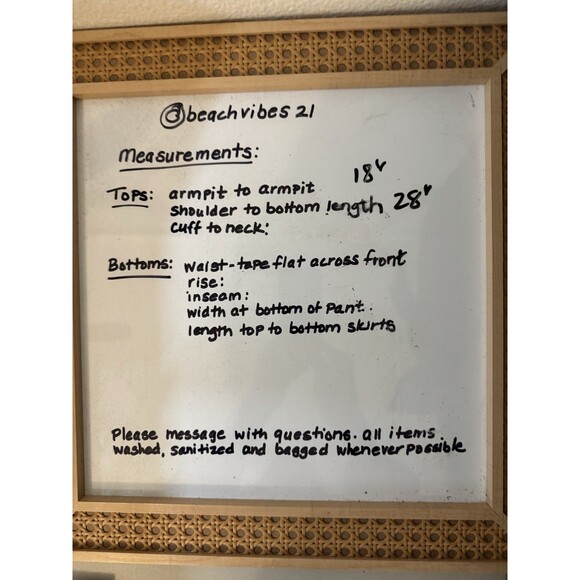 @beachvibes 21
Measurements:
Tops: armpit to armpit 18"
shoulder to bottom length 28"
cuff to neck:
Bottoms: waist-tape flat across front
rise:
inseam:
width at bottom of pant.
length top to bottom skirts
Please message with questions. all items
washed, sanitized and bagged whenever possible